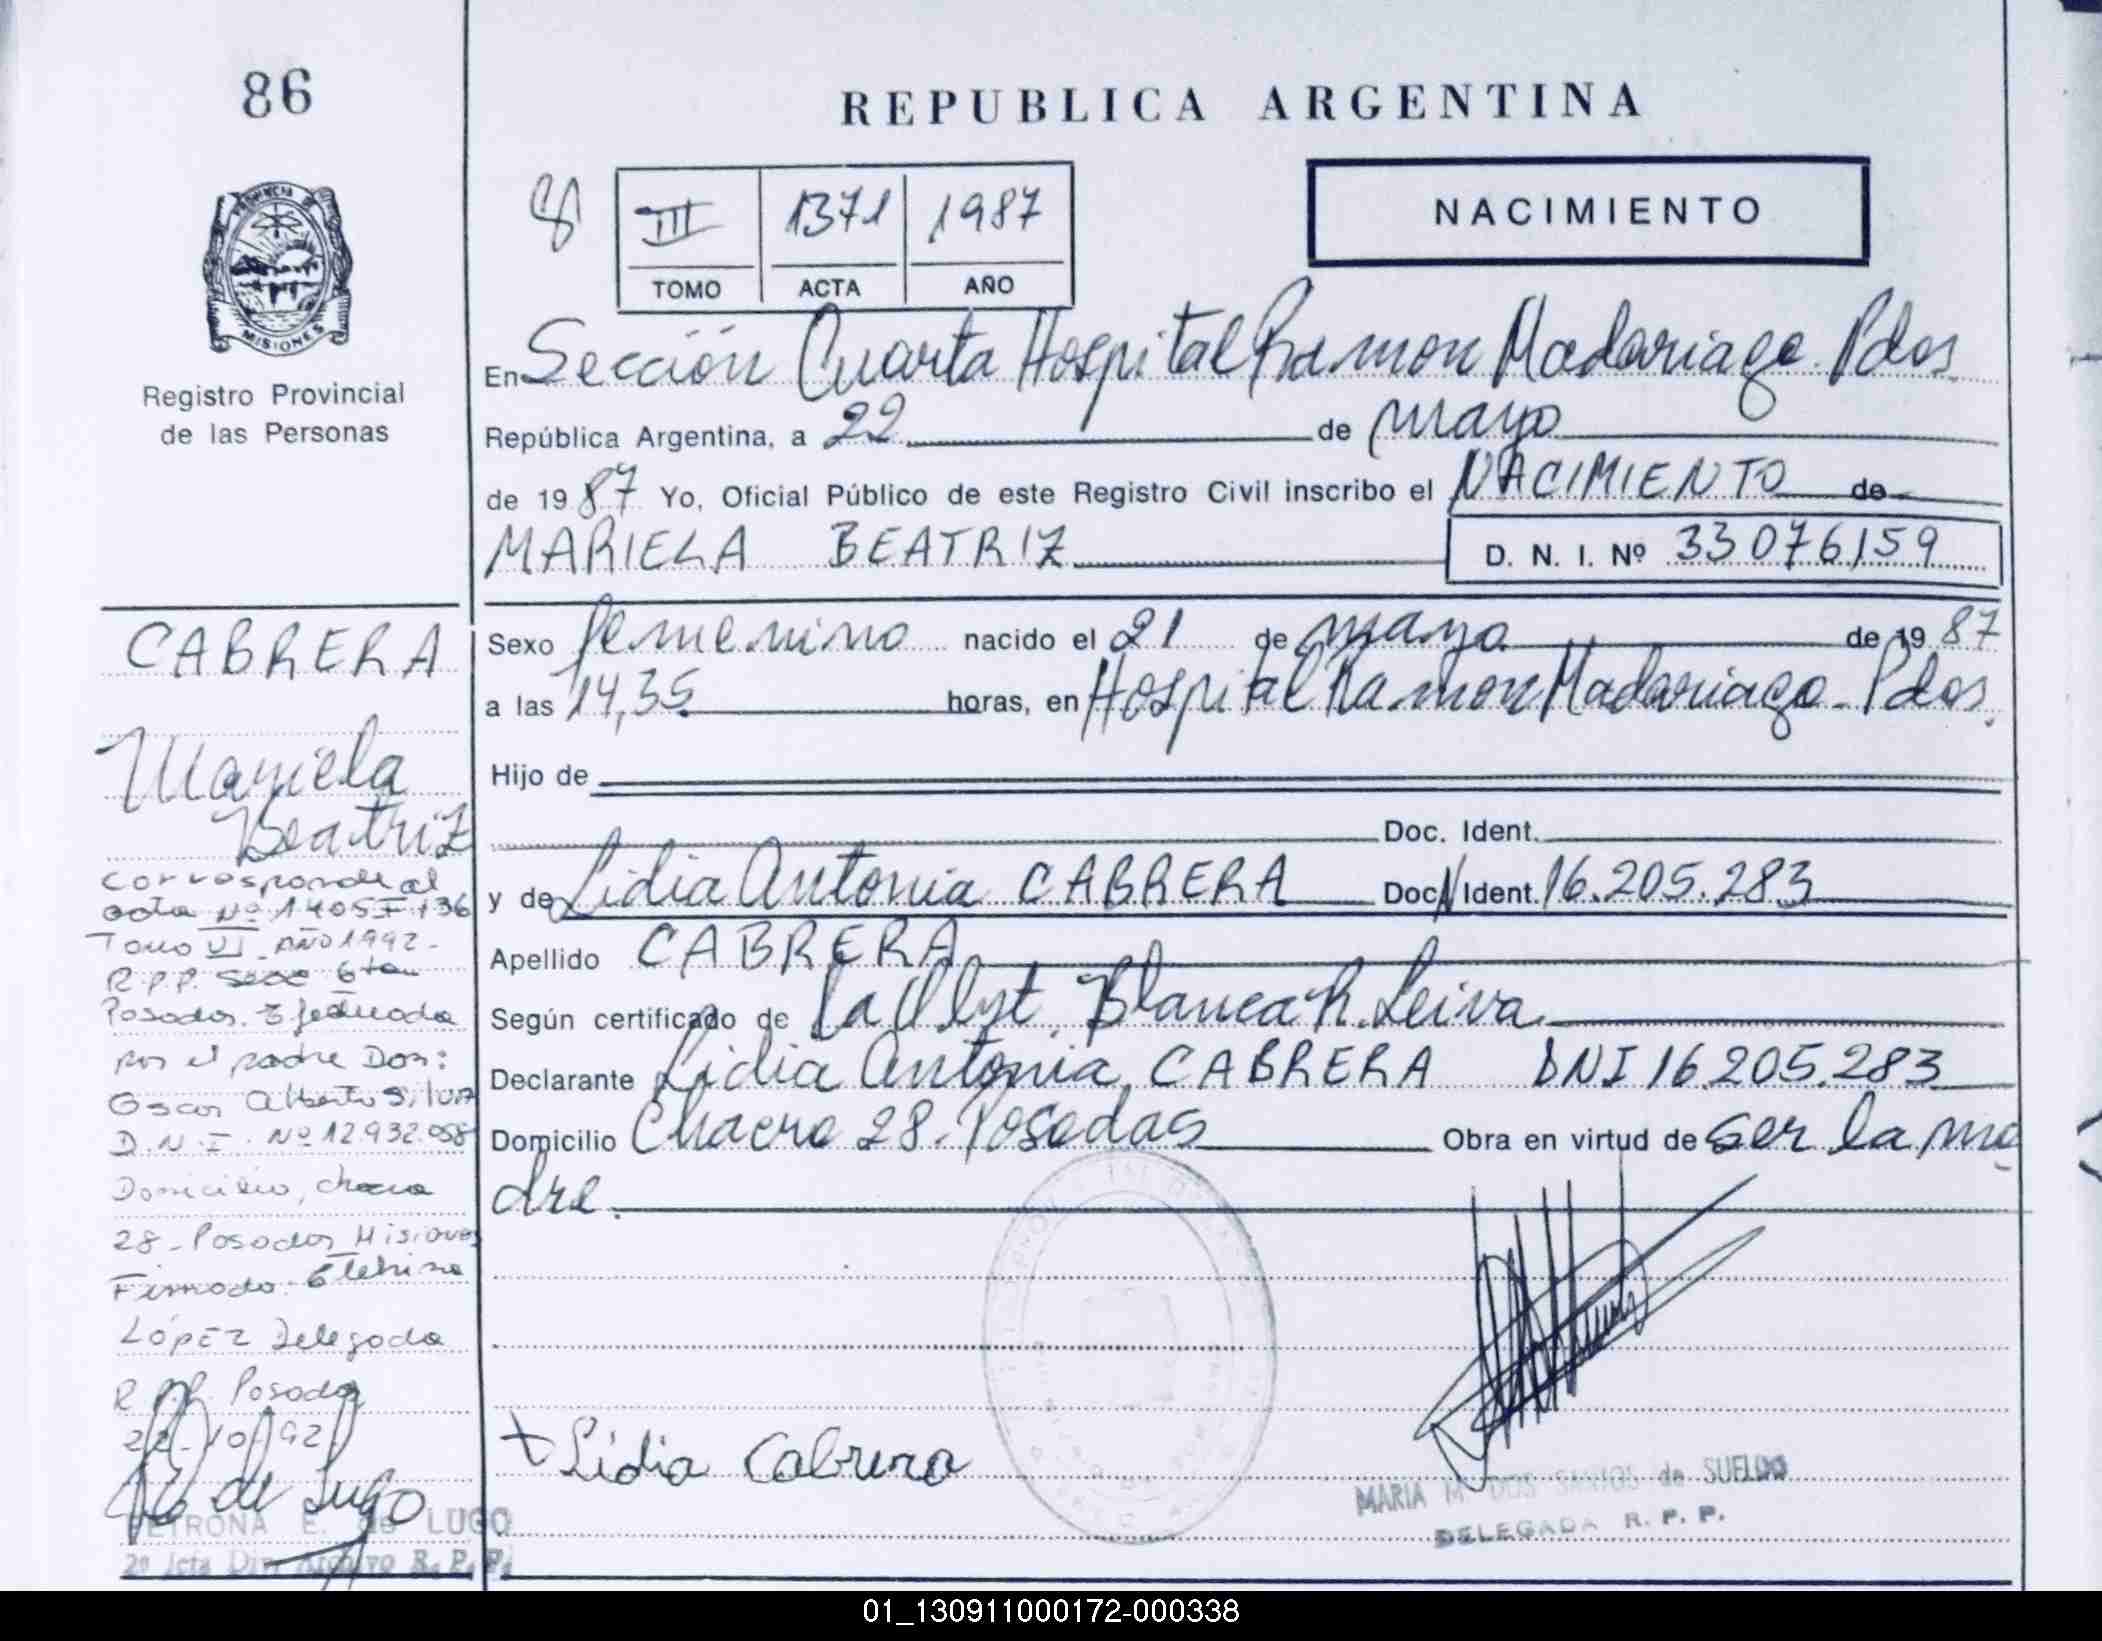 86
REPUBLICA ARGENTINA
8 III 1371 1987
TOMO ACTA AÑO
NACIMIENTO
PROVINCIA DE
MISIONES
Registro Provincial
de las Personas
En Sección Cuarta Hospital Ramon Madariaga Pdas.
República Argentina, a 22 de mayo
de 1987 Yo, Oficial Público de este Registro Civil inscribo el NACIMIENTO de
MARIELA BEATRIZ
D. N. I. Nº 33076159
Sexo femenino nacido el 21 de mayo de 1987
a las 14,35 horas, en Hospital Ramon Madariaga - Pdas.
Hijo de
Doc. Ident.
y de Lidia Antonia CABRERA Doc. Ident. 16.205.283
Apellido CABRERA
Según certificado de la Blanca R. Leiva
Declarante Lidia Antonia CABRERA DNI 16.205.283
Domicilio Chacra 28 - Posadas Obra en virtud de ser la ma
dre.
Lidia Cabrera
MARIA M DOS SANTOS de SUELDO
DELEGADA R. P. P.
CABRERA
Mariela
Beatriz
Corresponde al
acta Nº 1405 Fº 136
Tomo VI - AÑO 1992 -
R.P.P. Secc 6ta
Posadas. Efectuada
por el padre Don:
Oscar Alberto Silva
D.N.I. Nº 12.932.058
Domicilio, chacra
28 - Posadas Misiones
Firmado - Etelvina
LÓPEZ Delegada
R.P.P. Posadas
22-10-92
de Lugo
PETRONA E. de LUGO
2º Jefa Div. Archivo R. P. P.
01_130911000172-000338